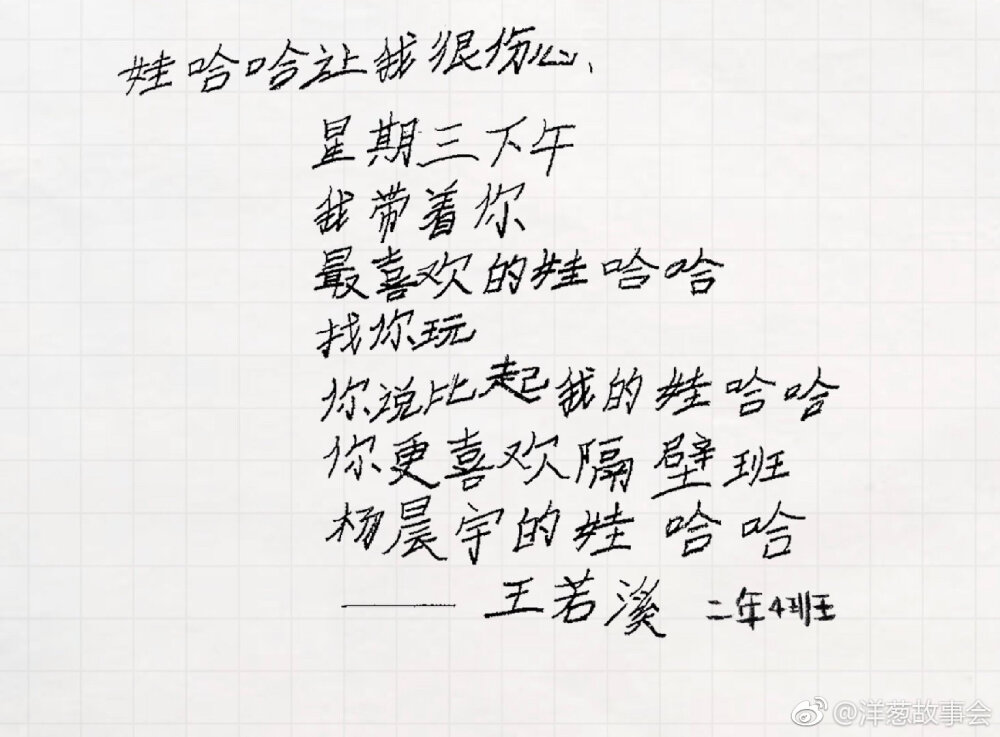 娃哈哈让我很伤心、
星期三下午
我带着你
最喜欢的娃哈哈
找你玩
你说比起我的娃哈哈
你更喜欢隔壁班
杨晨宇的娃哈哈
——王若溪 二年4班
@洋葱故事会